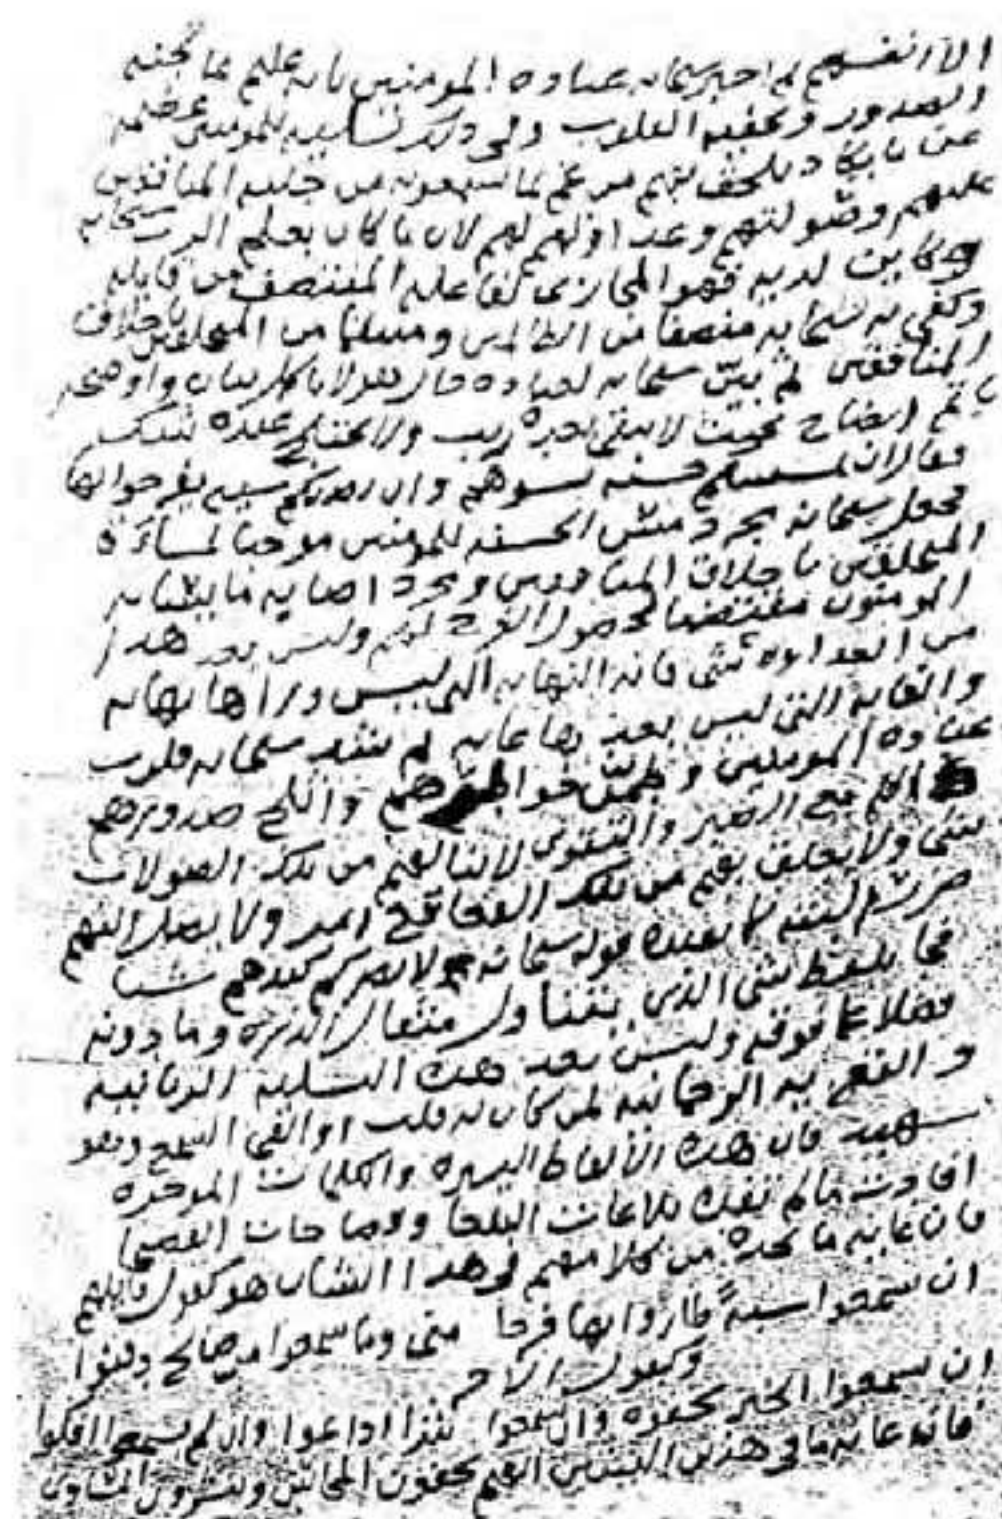 الا انفسهم ثم اخبر سبحانه عباده المومنين بانه عليم بما تجنه
الصدور وتخفيه القلوب وفي ذلك تسلية للمومنين عظيمه
عن ما يكاد يلحقهم من غم لما يسمعونه من المنافقين
عليهم وصولتهم وعداوتهم لهم لان ما كان بعلم الرب سبحانه
وكاين لديه فهو المجازي لفاعله المنتصف من قايله
وكفى به سبحانه منصفا من الظالمين ومنتقما من المتخلقين باخلاق
المنافقين ثم بين سبحانه لعباده حال هولاء اكمل بيان واوضحه
باتم ايضاح بحيث لا يبقى بعده ريب ولا يختلج عنده شك
فقال ان تمسسكم حسنه تسوهم وان تصبكم سيية يفرحوا بها
فجعل سبحانه مجرد مس الحسنه للمومنين موجبا لمساءة
المتخلقين باخلاق المنافقين ومجرد اصابة ما يساء به
المومنون مقتضيا لحصول الفرح لهم وليس بعد هذا
من العداوه شي فانه النهايه التي ليس وراها نهايه
والغايه التي ليس بعدها غايه ثم ثبت سبحانه قلوب
عباده المومنين وطمن خواطرهم واثلج صدورهم
انهم مع الصبر والتقوى لا ينالهم من تلك الصولات
شي ولا يعلق بهم من تلك امر ولا يصل اليهم
ضرر كما يفيده قوله سبحانه لا يضركم كيدهم شيا
فجا بلفظ شي الذي يتناول مثقال الذره وما دونه
فضلا عما فوقه وليس بعد هذه التسلية الربانيه
والتعزيه الرحمانيه لمن كان له قلب او القى السمع وهو
شهيد فان هذه الالفاظ اليسيره والكلمات الموجزه
افادت ما لم تفده بلاغات البلغا وفصاحات الفصحا
فان غاية ما تجده من كلامهم في هذا الشان هو كقول قايلهم
ان سمعوا سبة طاروا بها فرحا مني وما سمعوا من صالح دفنوا
وكقول الاخر
ان يسمعوا الخير يخفوه وان سمعوا شرا اذاعوا وان لم يسمعوا افكوا
فانه غاية ما في هذين البيتين انهم يخفون المحاسن وينشرون المساوي